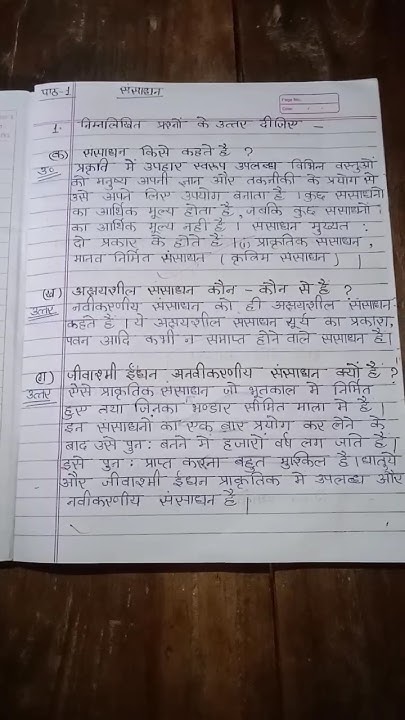 पाठ-1 संसाधन
Page No.
Date
1. निम्नलिखित प्रश्नों के उत्तर दीजिए –
(क) संसाधन किसे कहते है ?
उ० प्रकृति में उपहार स्वरूप उपलब्ध विभिन्न वस्तुओं
को मनुष्य अपनी ज्ञान और तकनीकी के प्रयोग से
उसे अपने लिए उपयोग बनाता है । कुछ संसाधनों
का आर्थिक मूल्य होता है, जबकि कुछ संसाधनों
का आर्थिक मूल्य नही है । संसाधन मुख्यत :
दो प्रकार के होते है । (i) प्राकृतिक संसाधन ,
मानव निर्मित संसाधन (कृत्रिम संसाधन) ।
(ख) अक्षयशील संसाधन कौन – कौन से है ?
उत्तर नवीकरणीय संसाधन को ही अक्षयशील संसाधन
कहते हैं । ये अक्षयशील संसाधन सूर्य का प्रकाश,
पवन आदि कभी न समाप्त होने वाले संसाधन है।
(ग) जीवाश्मी ईंधन अनवीकरणीय संसाधन क्यों है ?
उत्तर ऐसे प्राकृतिक संसाधन जो भूतकाल मे निर्मित
हुए तथा जिनका भण्डार सीमित मात्रा में है ।
इन संसाधनों का एक बार प्रयोग कर लेने के
बाद उसे पुन : बनने में हजारों वर्ष लग जाते है ।
इसे पुन : प्राप्त करना बहुत मुश्किल है । धातुयें
और जीवाश्मी ईंधन प्राकृतिक मे उपलब्ध और
नवीकरणीय संसाधन है ।